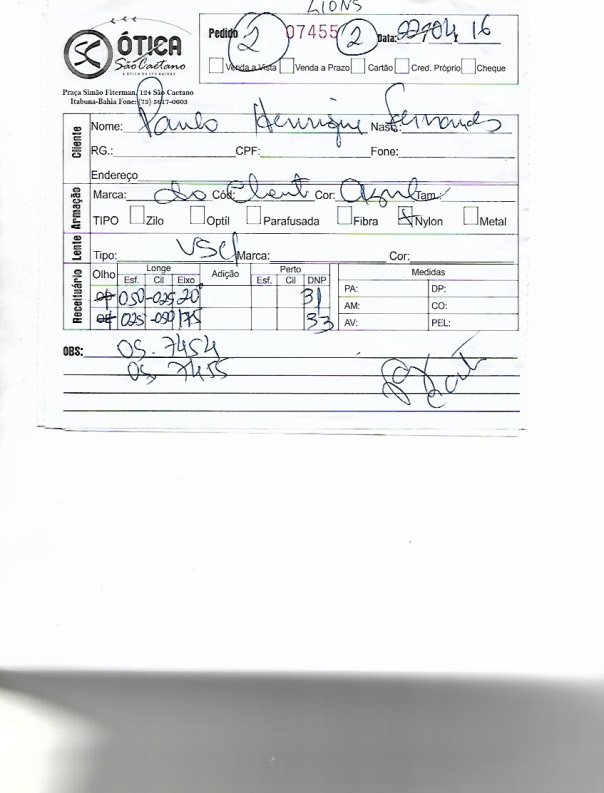 LIONS
ÓTICA
São Caetano
Praça Simão Fiterman, 124 São Caetano
Itabuna-Bahia Fone: (73) 3617-0603
Pedido 2 07455 2 Data: 22/04/16
Venda a Vista Venda a Prazo Cartão Cred. Próprio Cheque
Cliente
Nome: Paulo Henrique Nasc. Fernandes
RG.: CPF: Fone:
Endereço
Armação
Marca: do Client Cód: Cor: Azul Tam.:
TIPO Zilo Optíl Parafusada Fibra Nylon Metal
Lente
Tipo: Marca: Cor:
Receituário
Olho Longe Adição Perto Medidas
Esf. Cil Eixo Esf. Cil DNP
050 -025 20° 31 PA: DP:
AM: CO:
025 -050 175 33 AV: PEL:
OBS: OS. 7454
OS. 7455